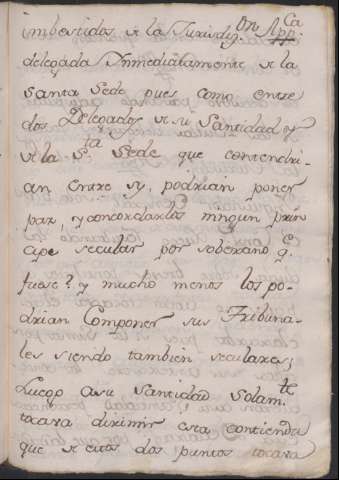 imbestidos de la Jurisdiz.on App.ca
delegada Inmediatamente de la
Santa Sede pues como entre
dos Delegados de su Santidad y
de la S.ta Sede que contendri-
an entre sy, podrian poner
paz, y concordarlos ningun prin
cipe secular por soberano q.e
fuese? y mucho menos los po-
drian Componer sus Tribuna-
les siendo tambien seculares;
Luego a su Santidad solam.te
tocara dirimir esta contienda
que de estos dos puntos tocara